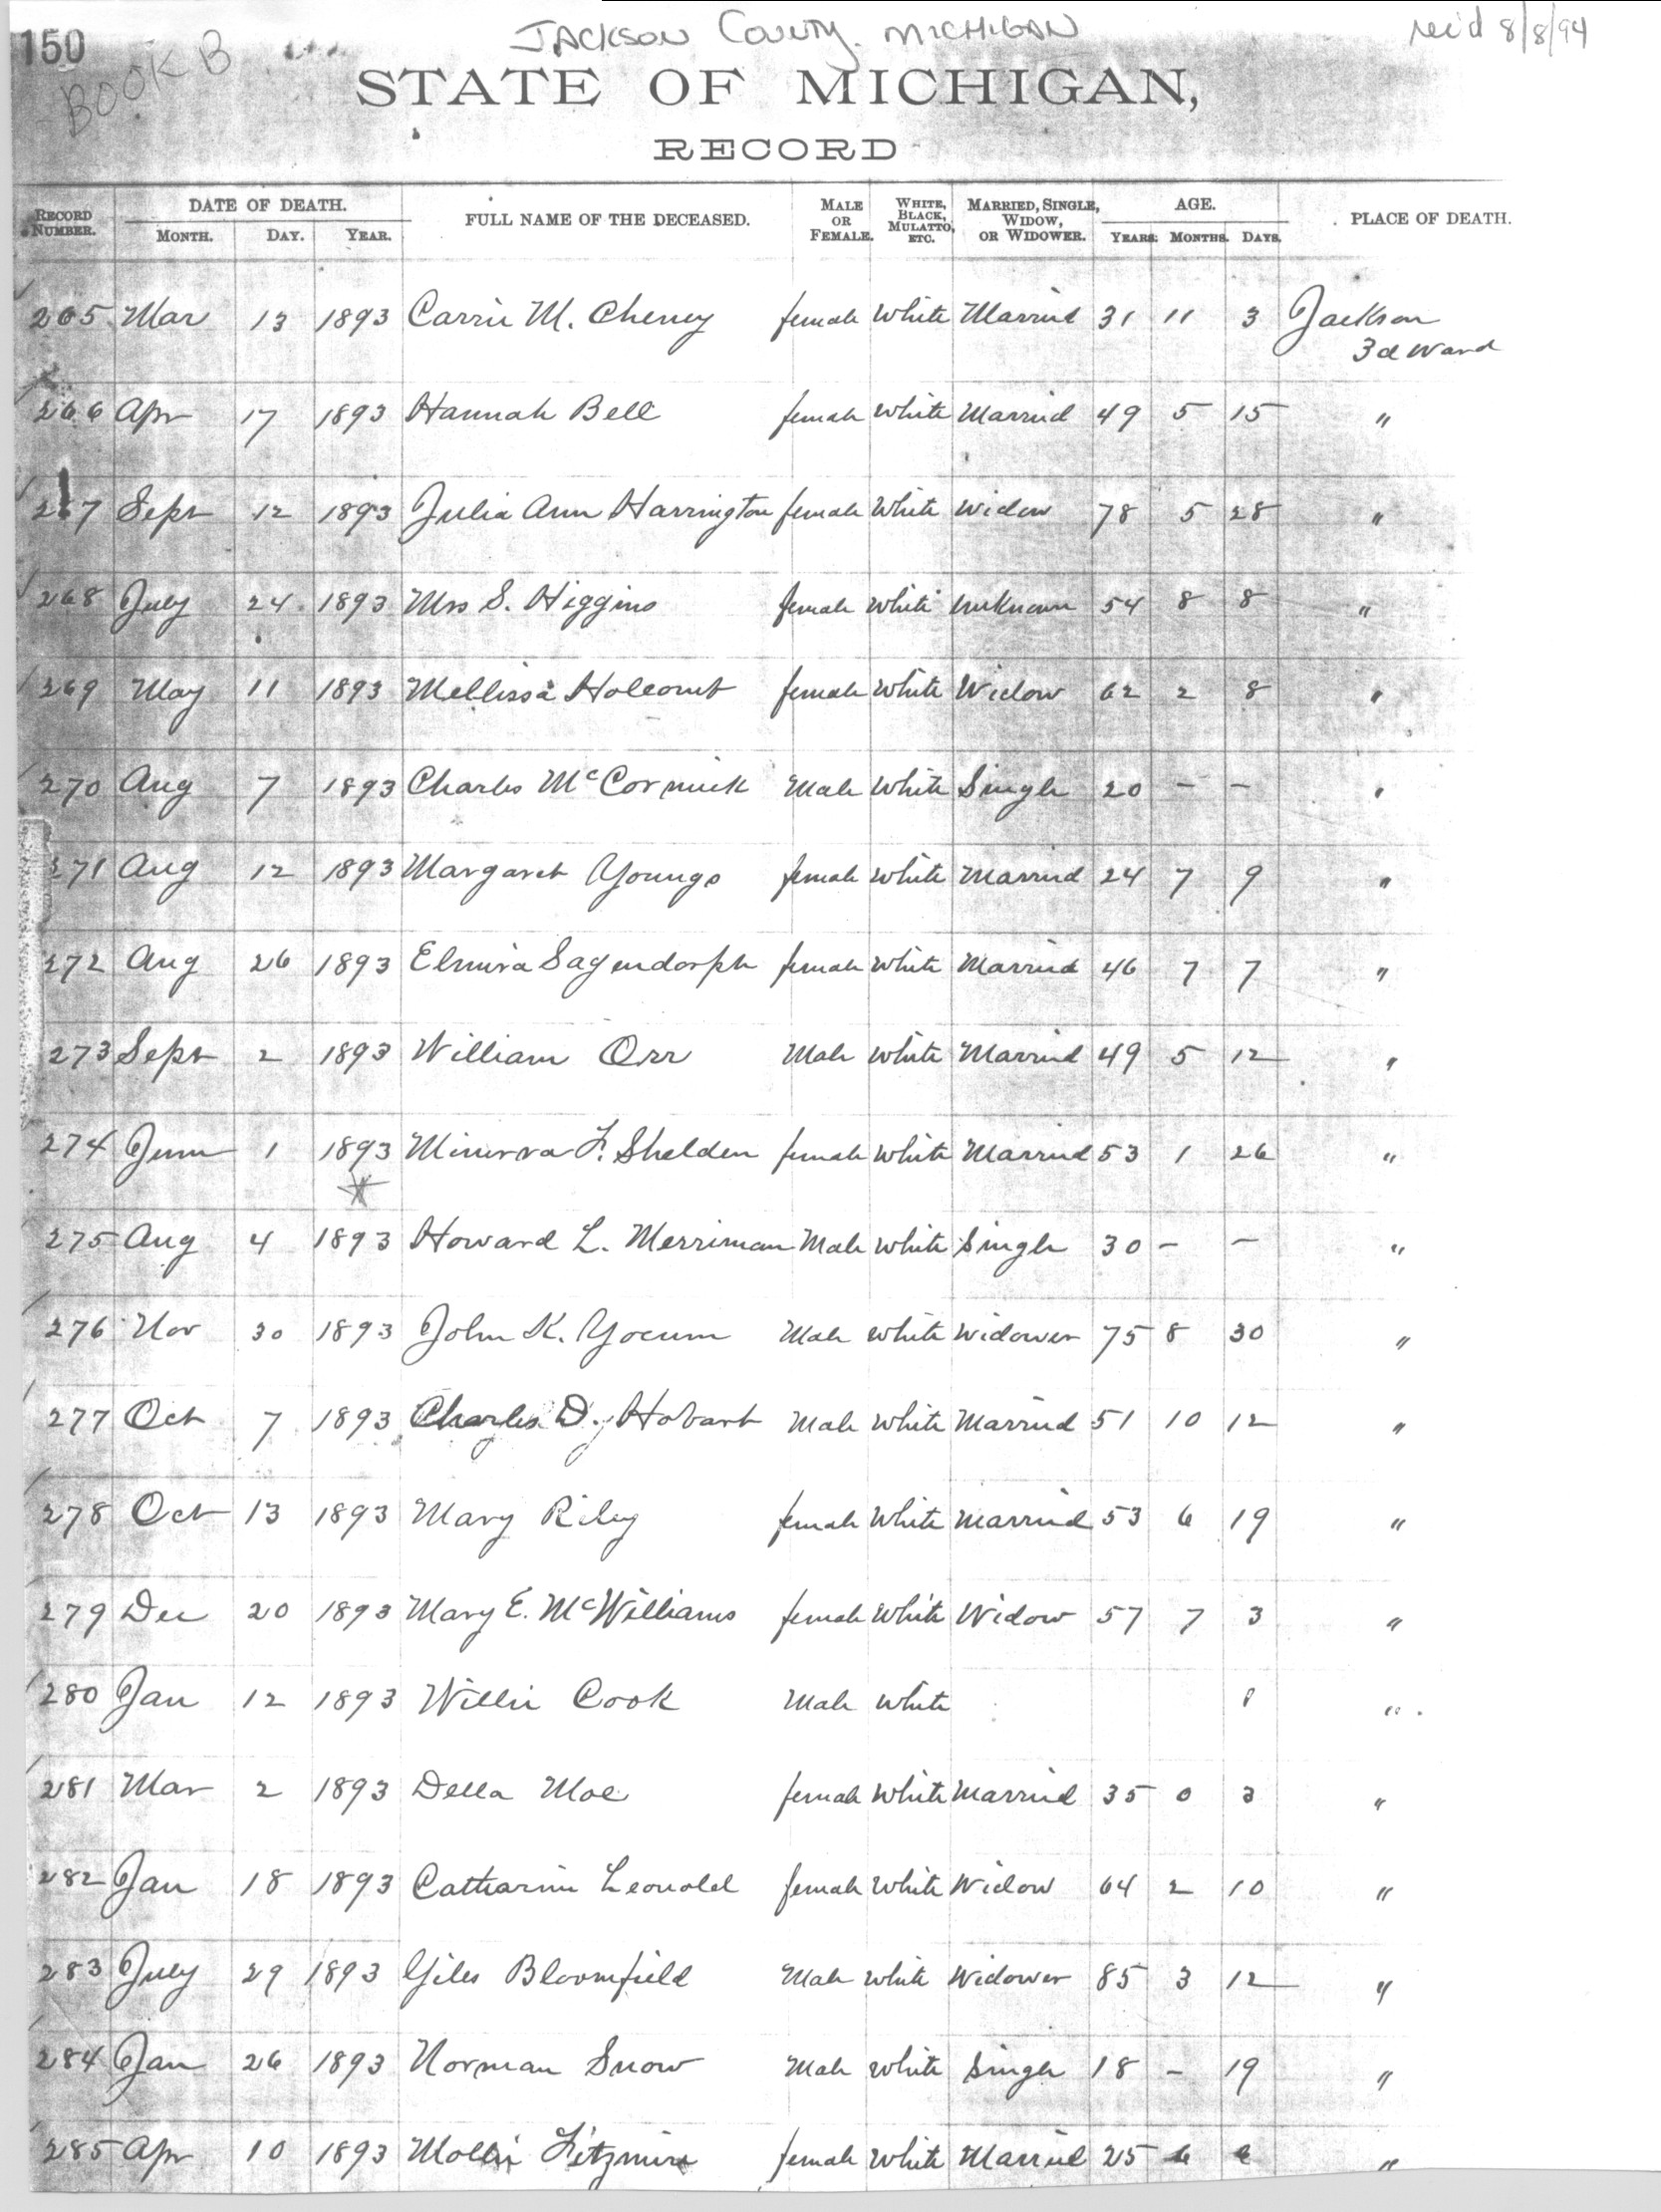 150
BOOK B
JACKSON COUNTY. MICHIGAN
rec'd 8/8/94
STATE OF MICHIGAN,
RECORD
RECORD NUMBER. DATE OF DEATH. MONTH. DAY. YEAR. FULL NAME OF THE DECEASED. MALE OR FEMALE. WHITE, BLACK, MULATTO, ETC. MARRIED, SINGLE, WIDOW, OR WIDOWER. AGE. YEARS. MONTHS. DAYS. PLACE OF DEATH.
265 Mar 13 1893 Carrie M. Cheney female White Married 31 11 3 Jackson
3d Ward
266 Apr 17 1893 Hannah Bell female White Married 49 5 15 "
267 Sept 12 1893 Julia Ann Harrington female White Widow 78 5 28 "
268 July 24 1893 Mrs S. Higgins female White Unknown 54 8 8 "
269 May 11 1893 Mellissa Holcomb female White Widow 62 2 8 "
270 Aug 7 1893 Charles McCormick Male White Single 20 – – "
271 Aug 12 1893 Margaret Youngs female White Married 24 7 9 "
272 Aug 26 1893 Elmira Sagendorph female White Married 46 7 7 "
273 Sept 2 1893 William Orr Male White Married 49 5 12 "
274 June 1 1893 Minerva F. Shelden female White Married 53 1 26 "
275 Aug 4 1893 Howard L. Merriman Male White Single 30 – – "
276 Nov 30 1893 John K. Yocum Male White Widower 75 8 30 "
277 Oct 7 1893 Charles D. Hobart Male White Married 51 10 12 "
278 Oct 13 1893 Mary Riley female White Married 53 6 19 "
279 Dec 20 1893 Mary E. McWilliams female White Widow 57 7 3 "
280 Jan 12 1893 Willie Cook Male White "
281 Mar 2 1893 Della Moe female White Married 35 0 3 "
282 Jan 18 1893 Catharine Leonold female White Widow 64 2 10 "
283 July 29 1893 Giles Bloomfield Male White Widower 85 3 12 "
284 Jan 26 1893 Norman Snow Male White Single 18 – 19 "
285 Apr 10 1893 Mollie Fitzmire female White Married 25 6 "